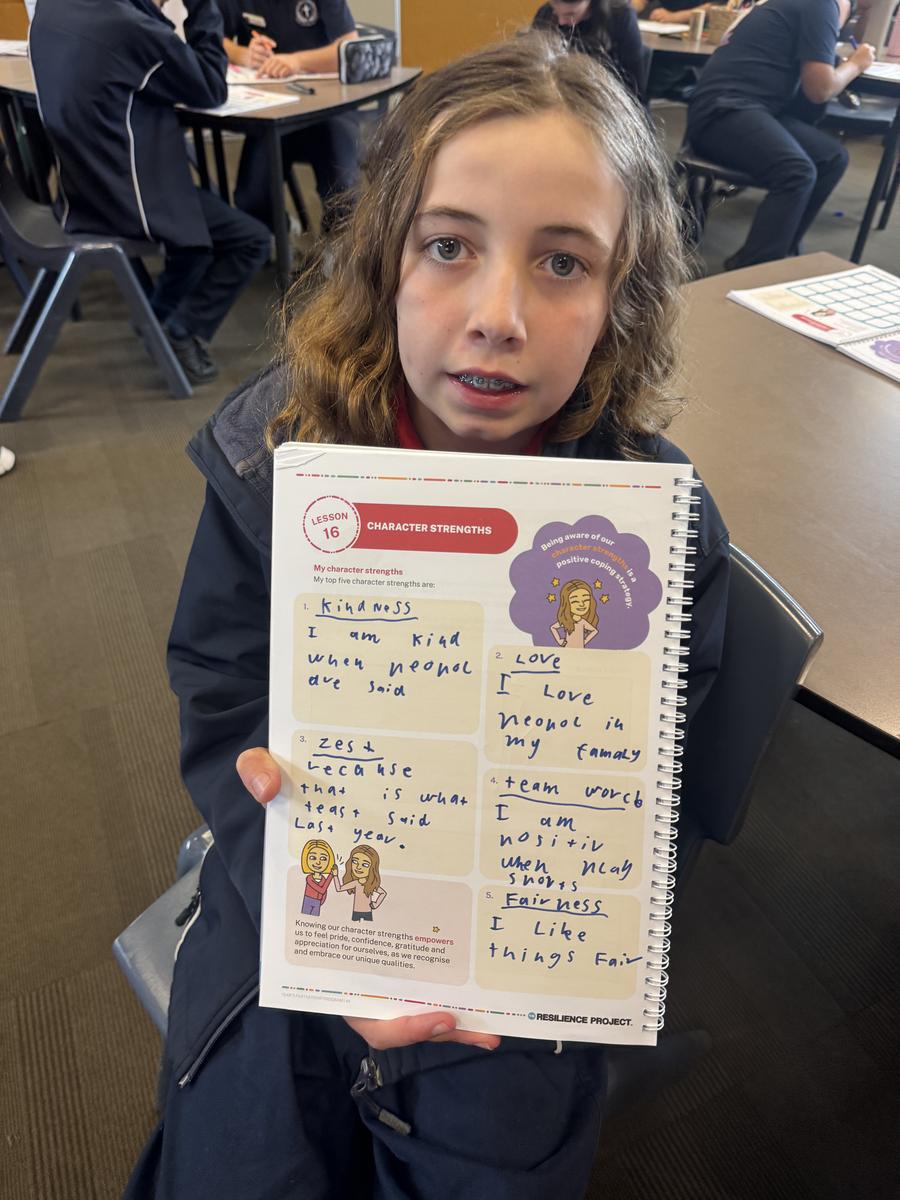 LESSON
16
CHARACTER STRENGTHS
Being aware of our
character strengths is a
positive coping strategy.
My character strengths
My top five character strengths are:
1. Kindness
I am kind
when neopol
are said
2. Love
I Love
neopol in
my famaly
3. zest
recause
that is what
teast said
Last year.
4. team worck
I am
nositiv
when nlay
snorts
5. Fairness
I Like
things Fair
Knowing our character strengths empowers
us to feel pride, confidence, gratitude and
appreciation for ourselves, as we recognise
and embrace our unique qualities.
THE RESILIENCE PROJECT.